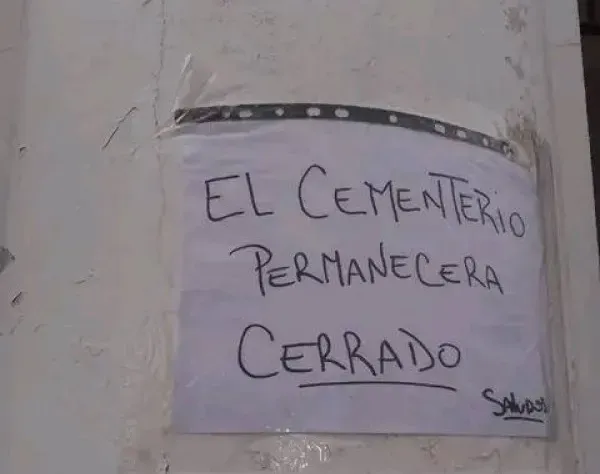 EL CEMENTERIO
PERMANECERA
CERRADO
SALUDOS